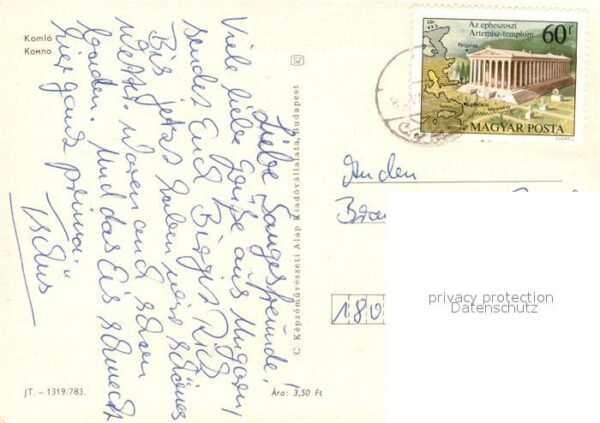 Komló
Комло
Liebe Sangesfreunde!
Viele liebe Grüße aus Ungarn,
sendet Euch Birgit
Bis jetzt haben wir schönes
Wetter. Waren auch schon
baden. Und das Eis schmeckt
hier ganz prima.
Tschüs
JT. – 1319/783.
Ára: 3,50 Ft
C Képzőművészeti Alap Kiadóvállalata, Budapest
Az epheszoszi
Artemisz-templom
60f
MAGYAR POSTA
An den
180
privacy protection
Datenschutz